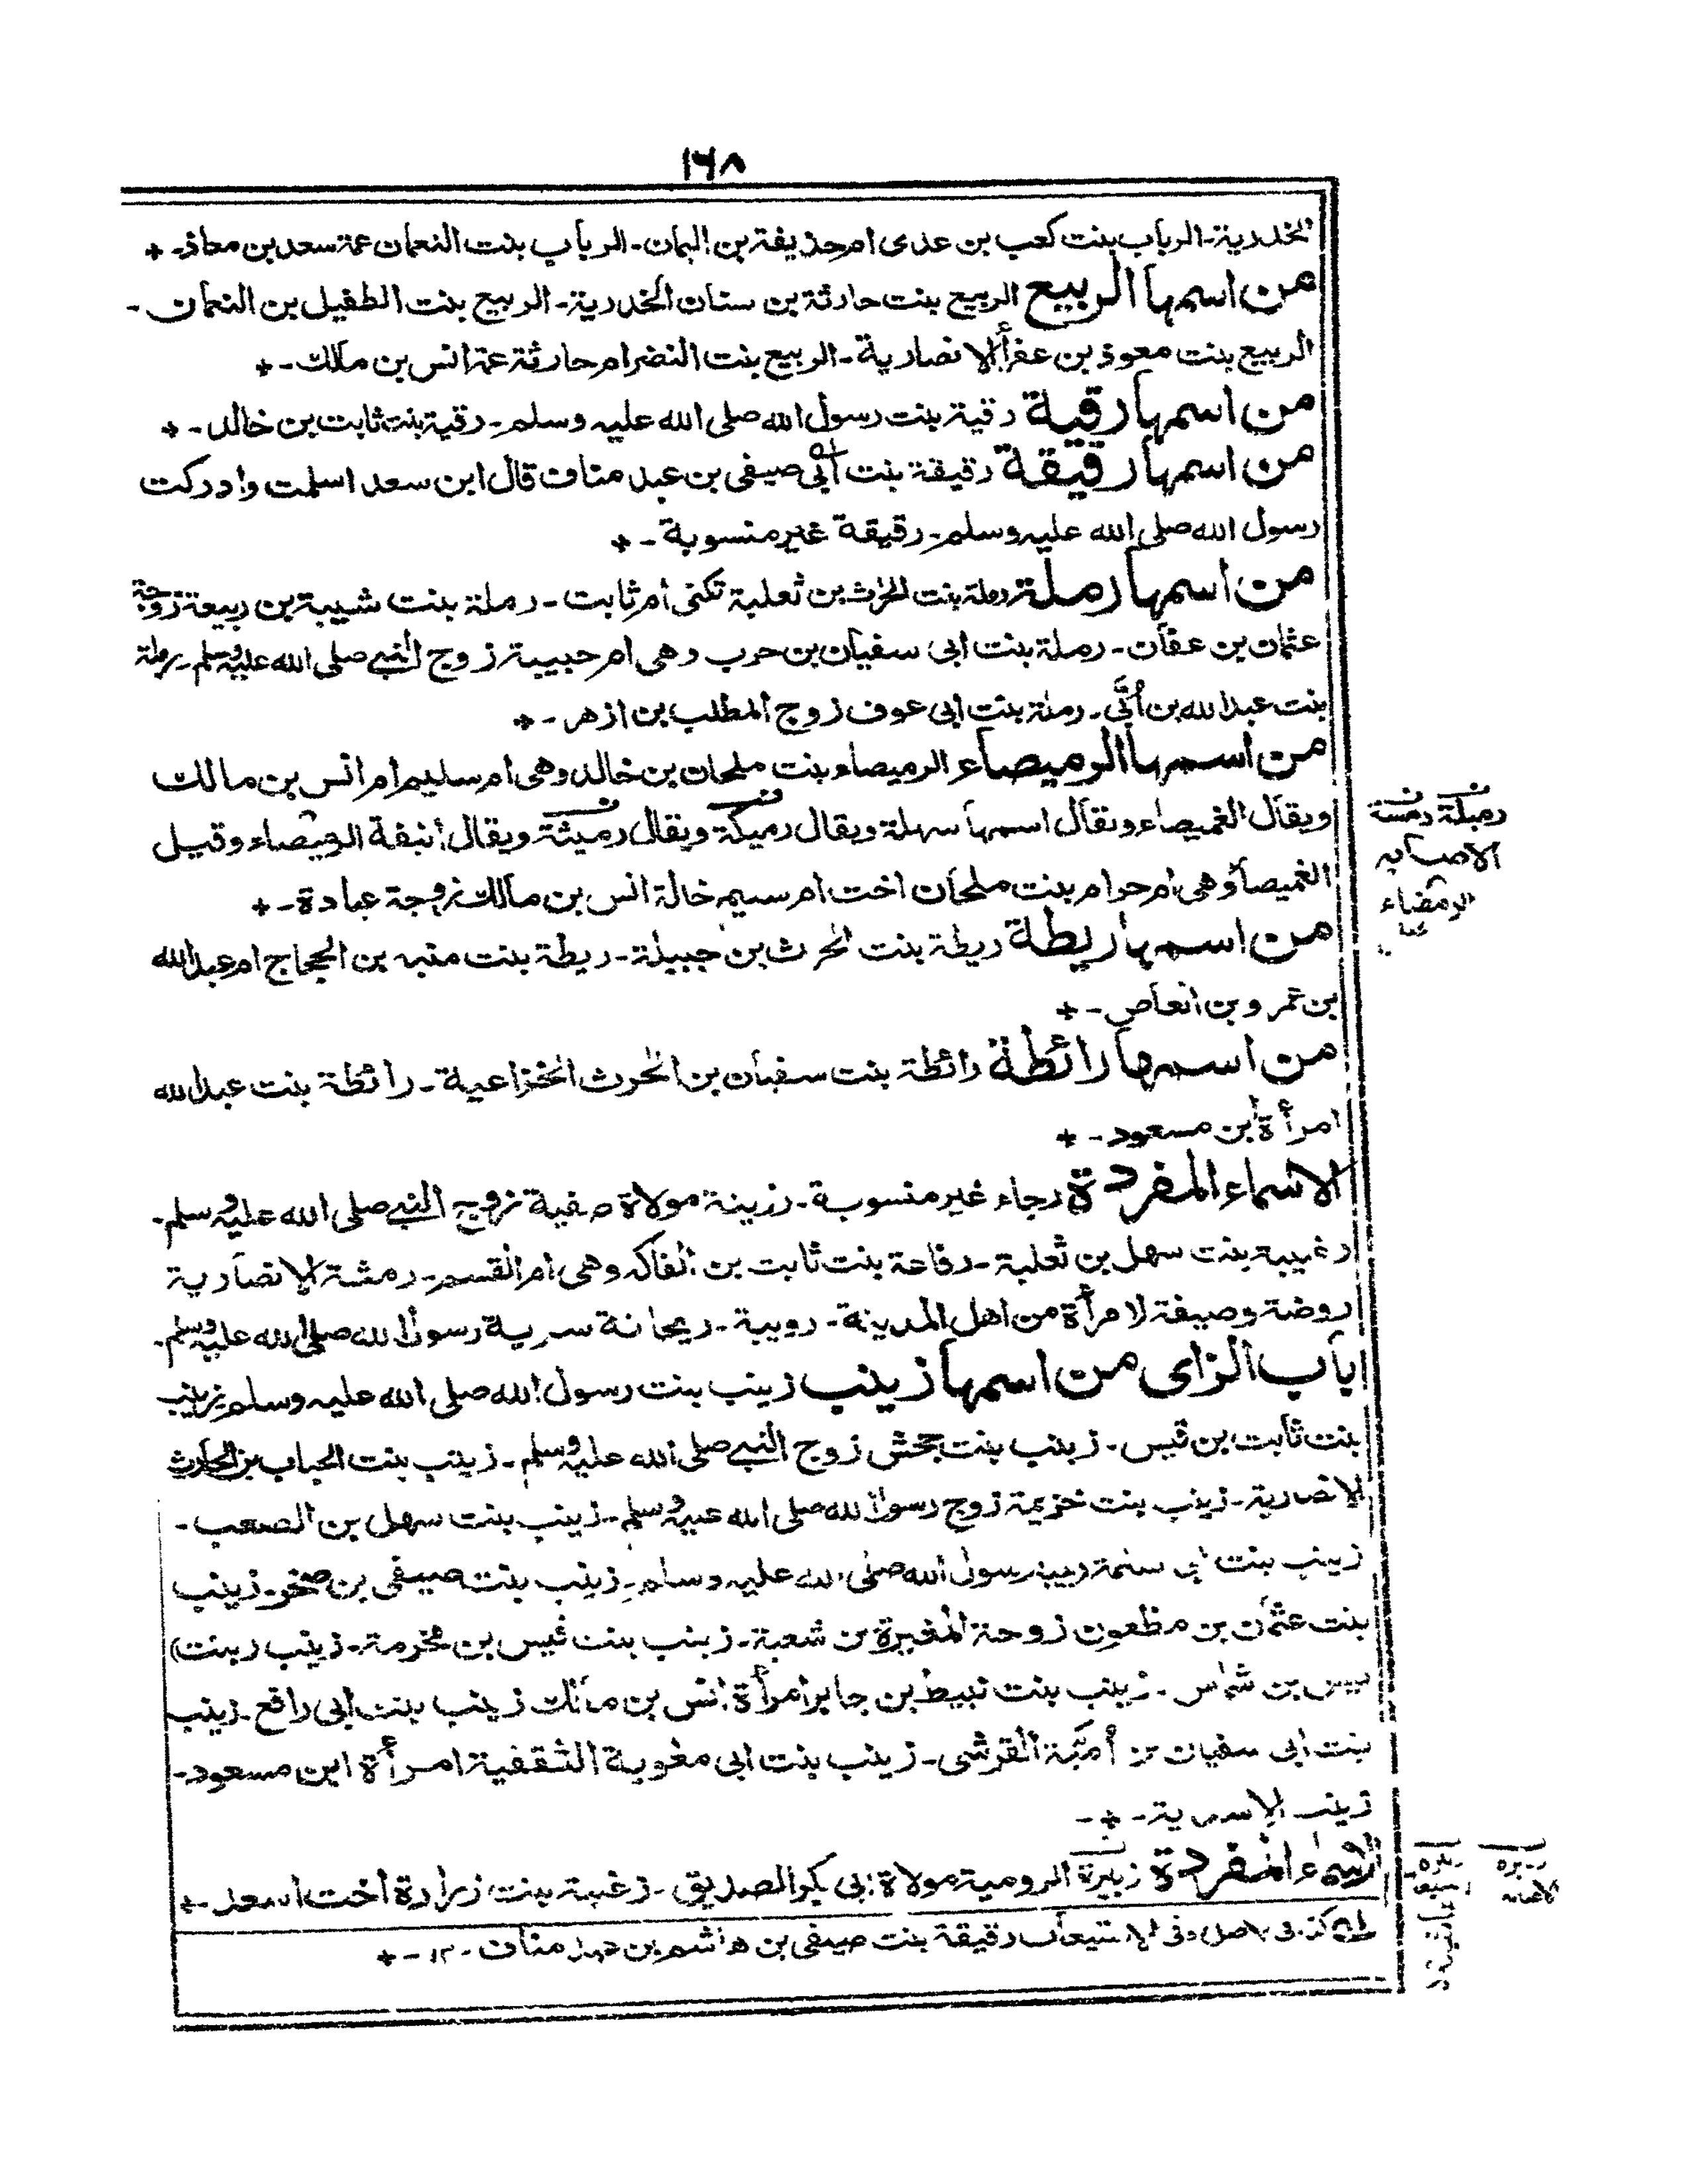 ١٦٨
الخدرية۔ الرباب بنت كعب بن عدى ام حذيفة بن اليمان۔ الرباب بنت النعمان عمة سعد بن معاذ۔ +
من اسمها الربيع الربيع بنت حارثة بن سنان الخدرية۔ الربيع بنت الطفيل بن النعمان۔
الربيع بنت معوذ بن عفرأ الانصارية۔ الربيع بنت النضر ام حارثة عمة انس بن ملك۔ +
من اسمها رقية رقية بنت رسول الله صلى الله عليه وسلم۔ رقية بنت ثابت بن خالد۔ +
من اسمها رقيقة رقيقة بنت ابى صيفى بن عبد مناف قال ابن سعد اسلمت وادركت
رسول الله صلى الله عليه وسلم۔ رقيقة غير منسوبة۔ +
من اسمها رملة رملة بنت الحرث بن ثعلبة تكنى أم ثابت۔ رملة بنت شيبة بن ربيعة زوجة
عثمان بن عفان۔ رملة بنت ابى سفيان بن حرب وهى ام حبيبة زوج النبى صلى الله عليه وسلم۔ رملة
بنت عبد الله بن أبَى۔ رملة بنت ابى عوف زوج المطلب بن ازهر۔ +
من اسمها الرميصاء الرميصاء بنت ملحان بن خالد وهى ام سليم ام انس بن مالك
ويقال الغميصاء ويقال اسمها سهلة ويقال رميكة ويقال رميثة ويقال أنيفة الرميصاء وقيل
الغميصاء وهى ام حرام بنت ملحان اخت ام سليم خالة انس بن مالك زوجة عبادة۔ +
من اسمها ريطة ريطة بنت الحرث بن جبيلة۔ ريطة بنت منبه بن الحجاج ام عبد الله
بن عمرو بن العاص۔ +
من اسمها رائطة رائطة بنت سفيان بن الحرث الخزاعية۔ رائطة بنت عبد الله
امرأة ابن مسعود۔ +
الاسماء المفردة رجاء غير منسوبة۔ رزينة مولاة صفية زوج النبى صلى الله عليه وسلم۔
رغيبة بنت سهل بن ثعلبة۔ رفاعة بنت ثابت بن الفاكه وهى ام القسم۔ رمشة الانصارية
روضة وصيفة لامرأة من اهل المدينة۔ روبية۔ ريحانة سرية رسول الله صلى الله عليه وسلم۔
باب الزاى من اسمها زينب زينب بنت رسول الله صلى الله عليه وسلم۔ زينب
بنت ثابت بن قيس۔ زينب بنت جحش زوج النبى صلى الله عليه وسلم۔ زينب بنت الحباب بن الحارث
الانصارية۔ زينب بنت خزيمة زوج رسول الله صلى الله عليه وسلم۔ زينب بنت سهل بن الصعب۔
زينب بنت ابى سلمة ربيبة رسول الله صلى الله عليه وسلم۔ زينب بنت صيفى بن صخر۔ زينب
بنت عثمان بن مظعون زوجة المغيرة بن شعبة۔ زينب بنت قيس بن مخرمة۔ زينب (بنت)
قيس بن شماس۔ زينب بنت نبيط بن جابر امرأة انس بن مالك زينب بنت ابى رافع۔ زينب
بنت ابى سفيان بن أمية القرشى۔ زينب بنت ابى معٰوية الثقفية امرأة ابن مسعود۔
زينب الاسدية۔ +۔
الاسماء المفردة زبيرة الرومية مولاة ابى بكر الصديق۔ زغيبة بنت زرارة اخت اسعد۔ +
كذا فى الاصل وفى الاستيعاب رقيقة بنت صيفى بن هاشم بن عبد مناف۔ ١٢۔ +
رميكة رمسة
الاصابه
الرمضاء